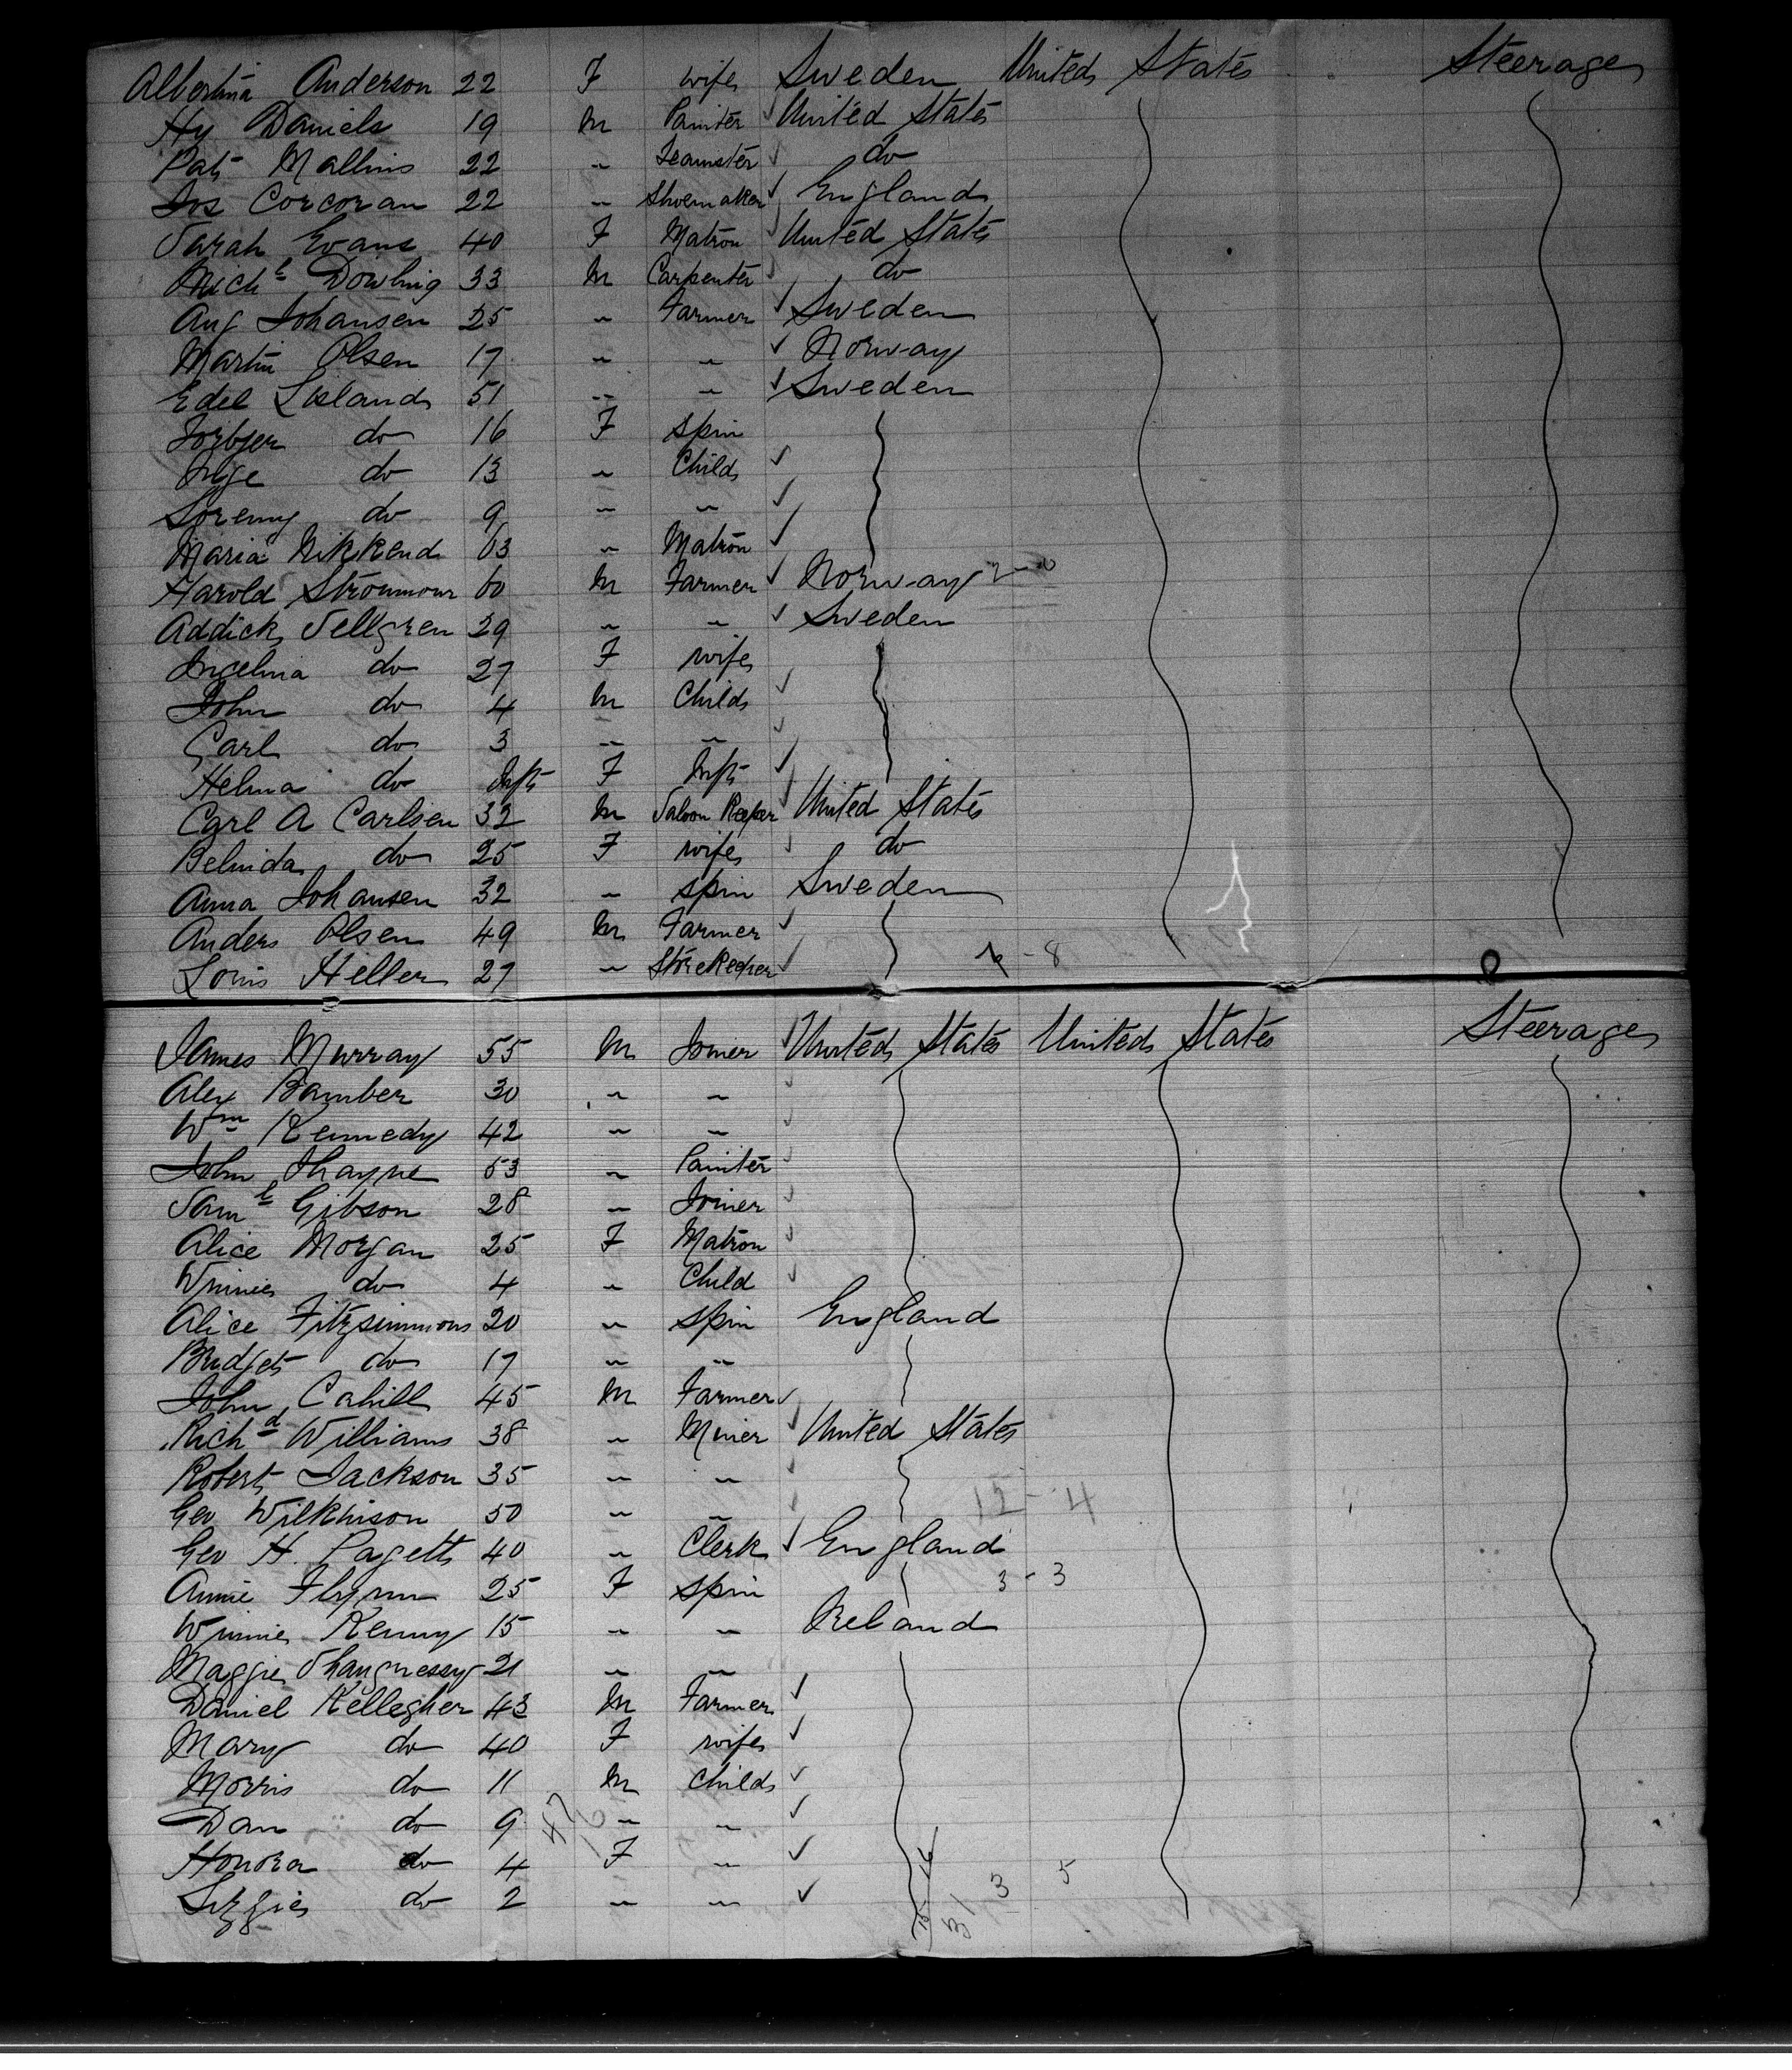 Albertina Anderson 22 F wife Sweden United States Steerage
Hy Daniels 19 m Painter United States
Pat Mallins 22 " Teamster do
Jos Corcoran 22 " Shoemaker England
Sarah Evans 40 F Matron United States
Michl Dowling 33 m Carpenter do
Aug Johansen 25 " Farmer Sweden
Martin Olsen 17 " " Norway
Edel Lisland 51 " " Sweden
Torbjer do 16 F spin
Inge do 13 " Child
do 9 " "
Maria Nikkend 63 " Matron
Harold 60 m Farmer Norway
Addick Sellgren 29 " " Sweden
Ingelina do 27 F wife
John do 4 m Child
Carl do 3 " "
Helma do Inft F Inft
Carl A Carlsen 32 m Saloon Keeper United States
Belinda do 25 F wife do
Anna Johansen 32 " spin Sweden
Anders Olsen 49 m Farmer
Louis Heller 27 " Storekeeper - 8
James Murray 55 m Joiner United States United States Steerage
Alex Bamber 30 " "
Wm Kennedy 42 " "
John Thayne 53 " Painter
Saml Gibson 28 " Joiner
Alice Morgan 25 F Matron
Winnie do 4 " Child
Alice Fitzsimmons 20 " spin England
Bridget do 17 " "
John Cahill 45 m Farmer
Richd Williams 38 " Miner United States
Robert Jackson 35 " "
Geo Wilkinson 50 " " 12 - 4
Geo H. Pagett 40 " Clerk England
Annie Flynn 25 F spin 3 - 3
Winnie Kenny 15 " " Ireland
Maggie Shaugnessy 21 " "
Daniel Kellegher 43 m Farmer
Mary do 40 F wife
Morris do 11 m Child
Dan do 9 " "
Honora do 4 F "
Lizzie do 2 " " 31 3 5
47